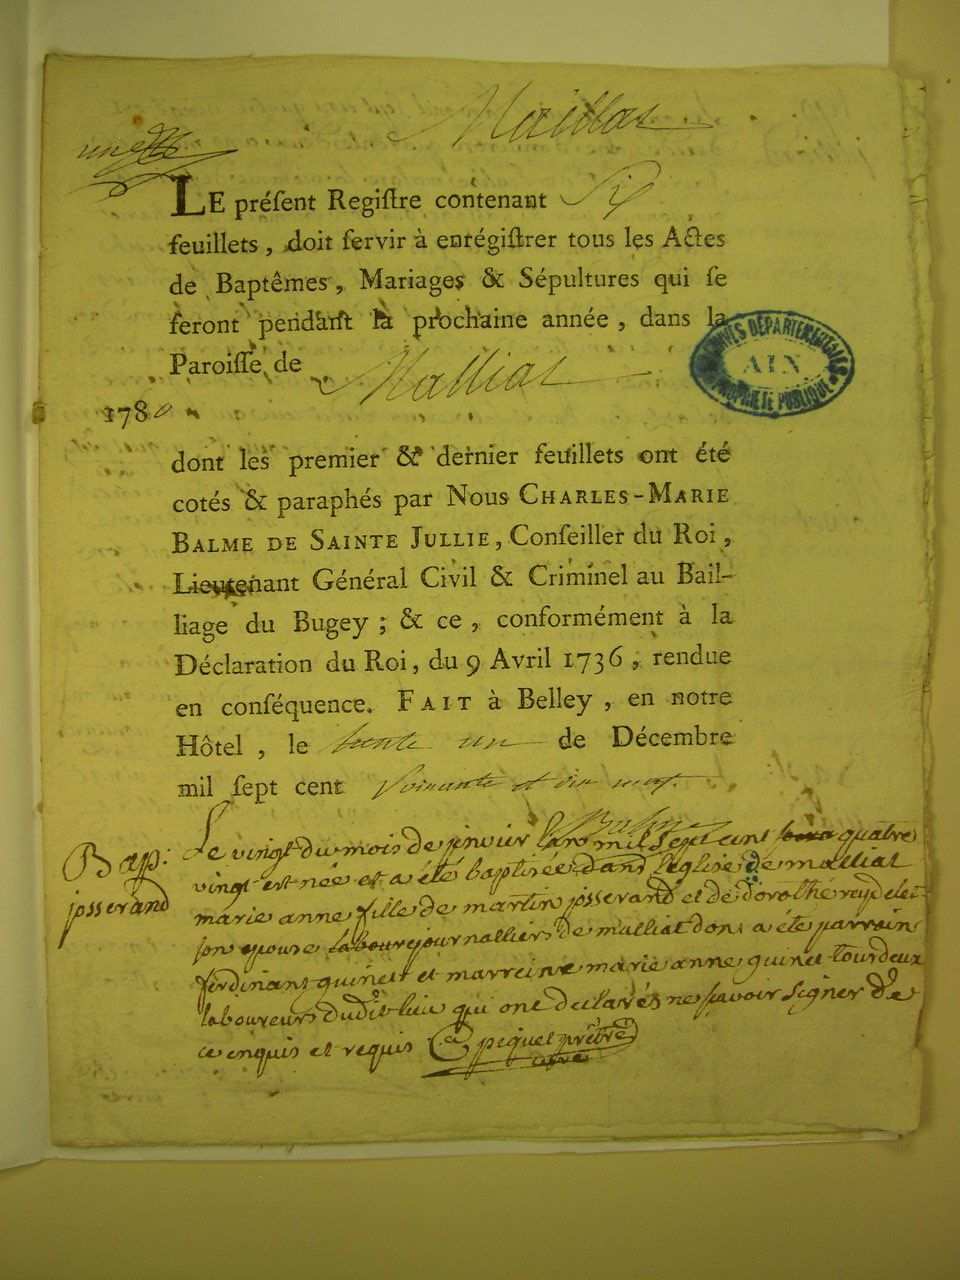 Maillat
une
LE préſent Regiſtre contenant Six
feuillets, doit ſervir à enrégiſtrer tous les Actes
de Baptêmes, Mariages & Sépultures qui ſe
feront pendant la prochaine année, dans la
Paroiſſe de Malliat
1780
ARCHIVES DÉPARTEMENTALES
AIN
PROPRIÉTÉ PUBLIQUE
dont les premier & dernier feuillets ont été
cotés & paraphés par Nous CHARLES-MARIE
BALME DE SAINTE JULLIE, Conſeiller du Roi,
Lieutenant Général Civil & Criminel au Bail-
liage du Bugey ; & ce, conformément à la
Déclaration du Roi, du 9 Avril 1736, rendue
en conſéquence. FAIT à Belley, en notre
Hôtel, le trente un de Décembre
mil ſept cent Soixante et dix neuf.
Balme
Bap:
josserand
Le vingt du mois de janvier lan mil sept cent quatre
vingt est nee et a été baptisée dans l'eglise de malliat
marie anne fille de martin josserand et de dorothé
son epouse journalliers de malliat dont a été parrain
ferdinand quinet et marreine marie anne quinet tourdeux
laboureurs dudit lieu qui ont declarés ne savoir signer de
ce enquis et requis piquet prêtre